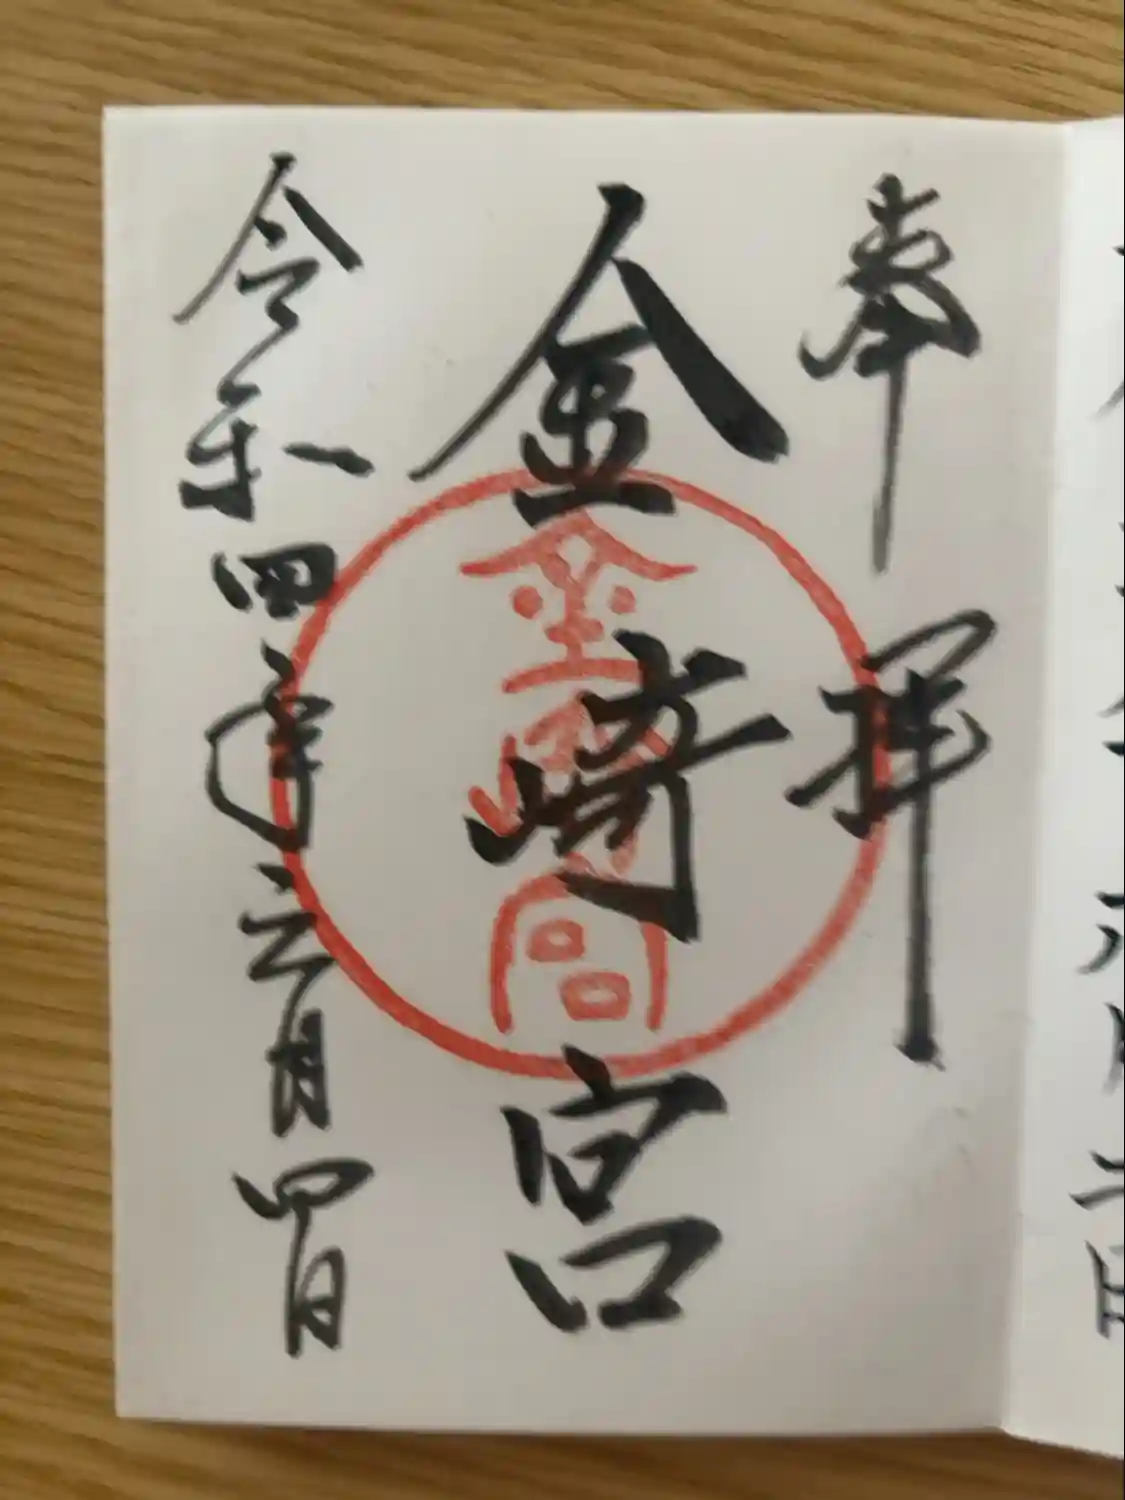 奉拝
金崎宮
金崎宮
令和四年六月四日